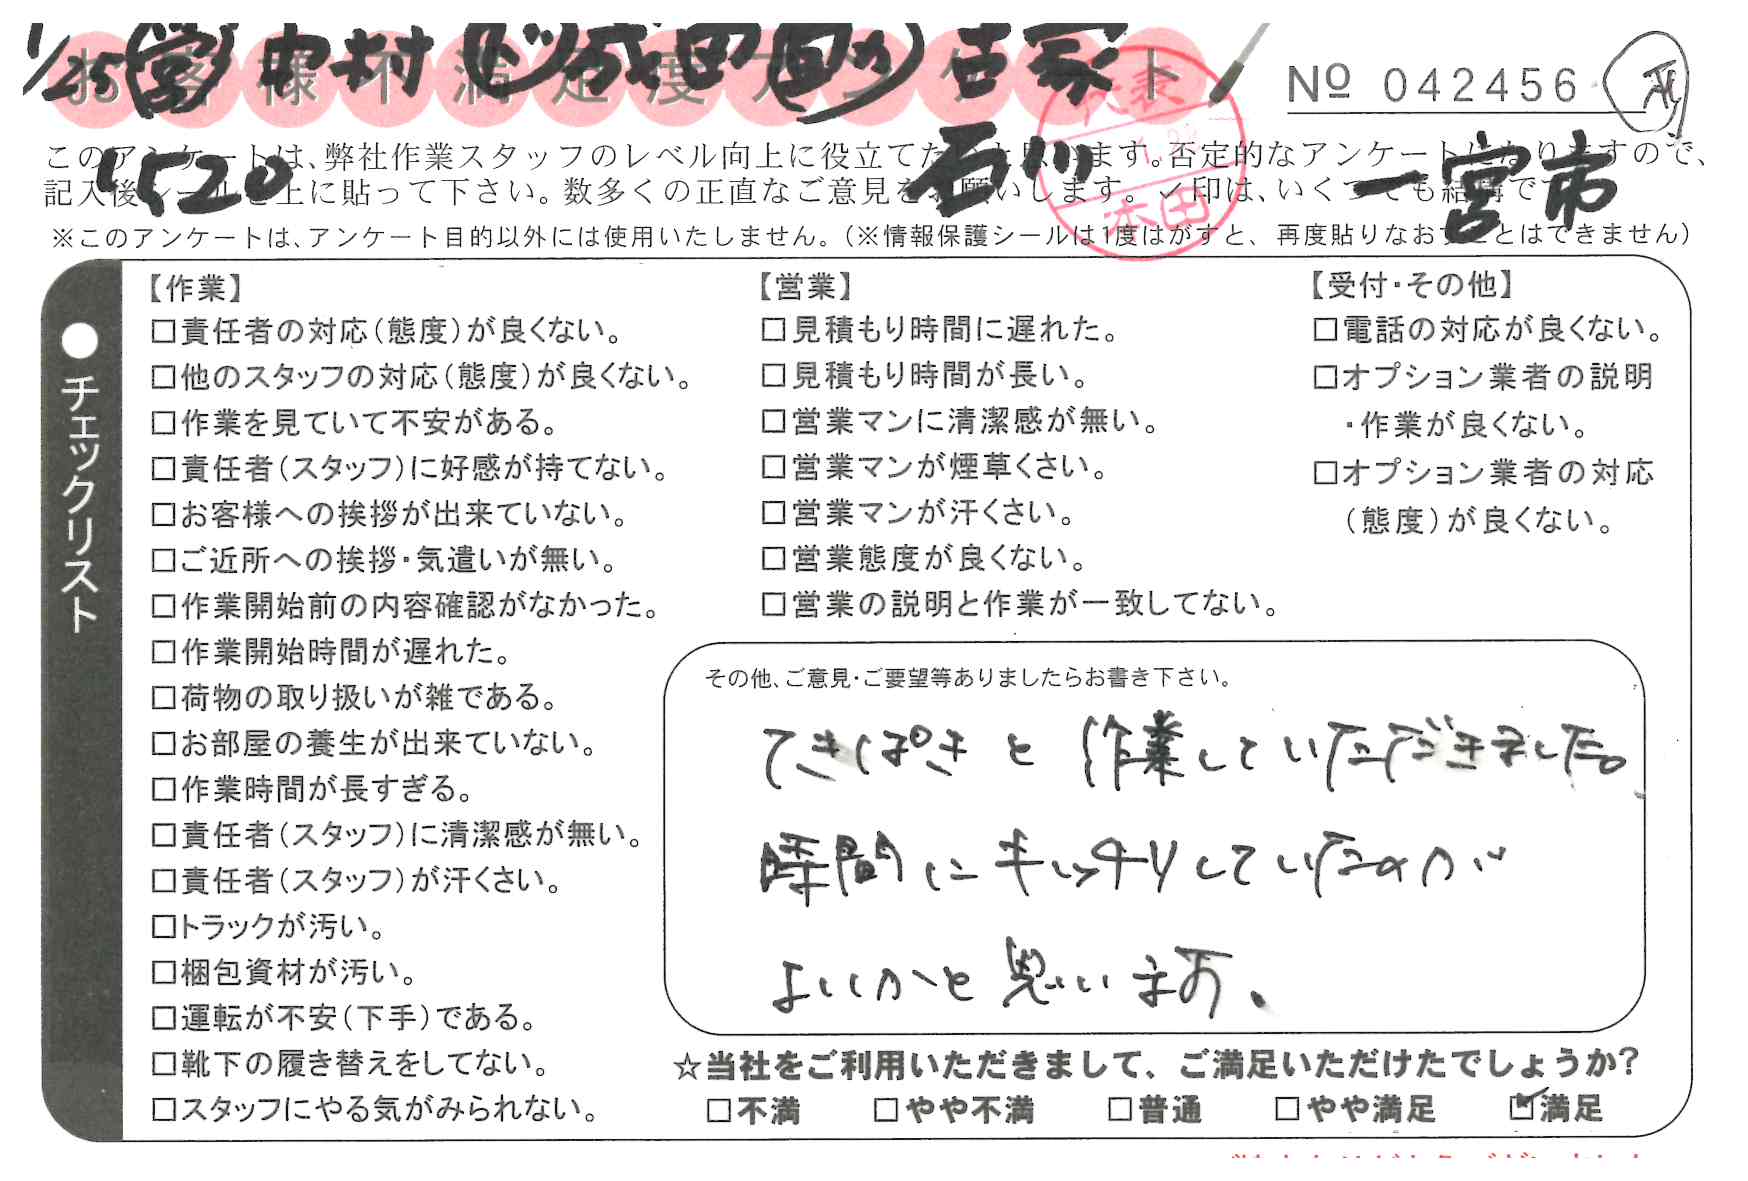 1/25 宮 中村 成田 古家
お客様不満足度アンケート
№ 042456
このアンケートは、弊社作業スタッフのレベル向上に役立てたいと思います。否定的なアンケートになりますので、
記入後シールを上に貼って下さい。数多くの正直なご意見をお願いします。✓印は、いくつでも結構です
4520 石川 一宮市
代表
本田
※このアンケートは、アンケート目的以外には使用いたしません。（※情報保護シールは1度はがすと、再度貼りなおすことはできません）
●チェックリスト
【作業】
□責任者の対応（態度）が良くない。
□他のスタッフの対応（態度）が良くない。
□作業を見ていて不安がある。
□責任者（スタッフ）に好感が持てない。
□お客様への挨拶が出来ていない。
□ご近所への挨拶・気遣いが無い。
□作業開始前の内容確認がなかった。
□作業開始時間が遅れた。
□荷物の取り扱いが雑である。
□お部屋の養生が出来ていない。
□作業時間が長すぎる。
□責任者（スタッフ）に清潔感が無い。
□責任者（スタッフ）が汗くさい。
□トラックが汚い。
□梱包資材が汚い。
□運転が不安（下手）である。
□靴下の履き替えをしてない。
□スタッフにやる気がみられない。
【営業】
□見積もり時間に遅れた。
□見積もり時間が長い。
□営業マンに清潔感が無い。
□営業マンが煙草くさい。
□営業マンが汗くさい。
□営業態度が良くない。
□営業の説明と作業が一致してない。
【受付・その他】
□電話の対応が良くない。
□オプション業者の説明
・作業が良くない。
□オプション業者の対応
（態度）が良くない。
その他、ご意見・ご要望等ありましたらお書き下さい。
てきぱきと作業していただきました。
時間にキッチリしていたのが
よいかと思います。
☆当社をご利用いただきまして、ご満足いただけたでしょうか？
□不満 □やや不満 □普通 □やや満足 ☑満足